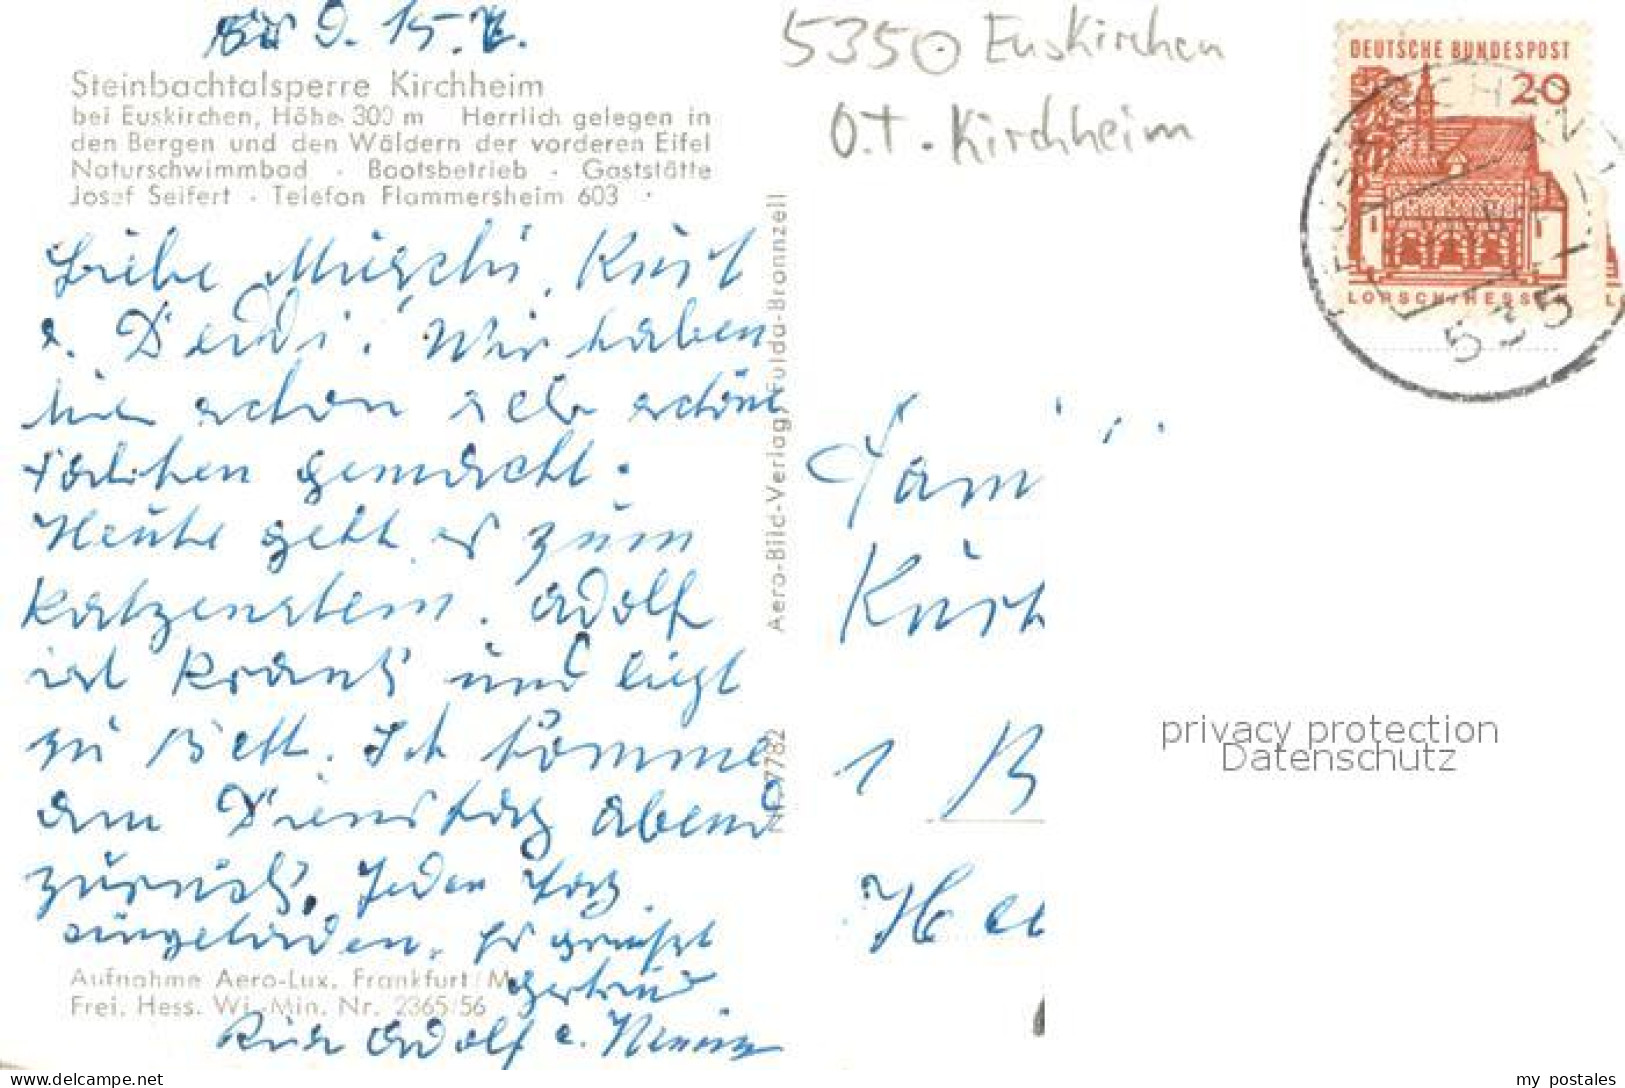 9. 15.
Steinbachtalsperre Kirchheim
bei Euskirchen, Höhe 300 m Herrlich gelegen in
den Bergen und den Wäldern der vorderen Eifel
Naturschwimmbad · Bootsbetrieb · Gaststätte
Josef Seifert · Telefon Flammersheim 603
Liebe Kurt
Wir haben
hier schon sehr schöne
gemacht.
Heute geht es zum
Katzenstein. Adolf
ist krank und liegt
zu Bett. Ich komme
am Dienstag abend
zurück. Jeden Tag
eingeladen. Es grüßt
Gertrud
Adolf
Aufnahme Aero-Lux, Frankfurt/M
Frei. Hess. Wi.-Min. Nr. 2365/56
Aero-Bild-Verlag, Fulda-Bronnzell
Nr. 7782
5350 Euskirchen
O.T. - Kirchheim
DEUTSCHE BUNDESPOST
20
LORSCH/HESS
535
Fam
Kurt
1 B
privacy protection
Datenschutz
www.delcampe.net
my_postales